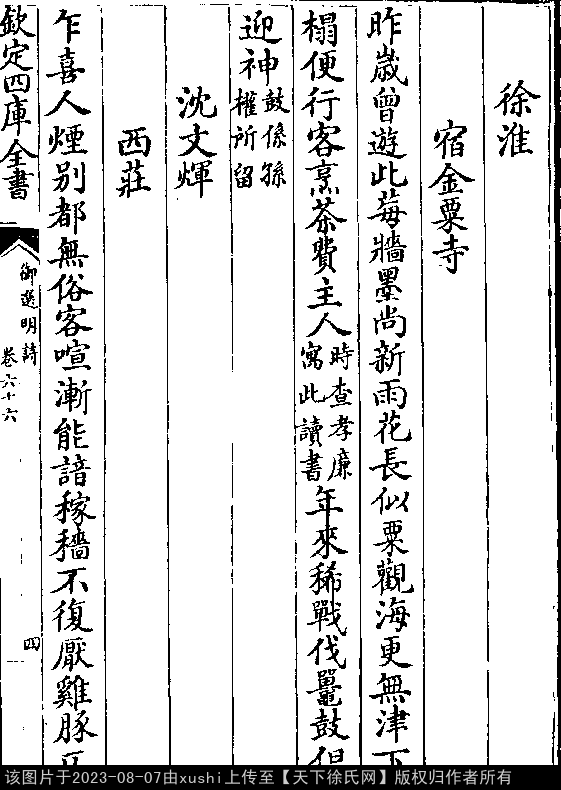 徐淮
宿金粟寺
昨歳曽遊此莓牆墨尚新雨花長似粟觀海更無津下
榻便行客烹茶費主人時查孝廉寓此讀書年來稀戰伐鼉鼓但
迎神鼓係孫權所留
沈文煇
西莊
乍喜人煙别都無俗客喧漸能諳稼穡不復厭雞豚
欽定四庫全書
御選明詩
卷六十六
四
该图片于2023-08-07由xushi上传至【天下徐氏网】版权归作者所有